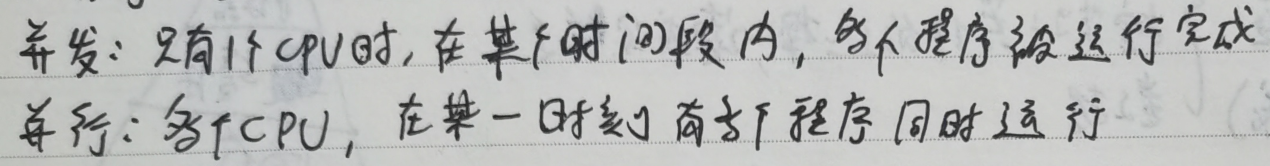 并发：只有1个CPU时，在某个时间段内，多个程序被运行完成
并行：多个CPU，在某一时刻有多个程序同时运行